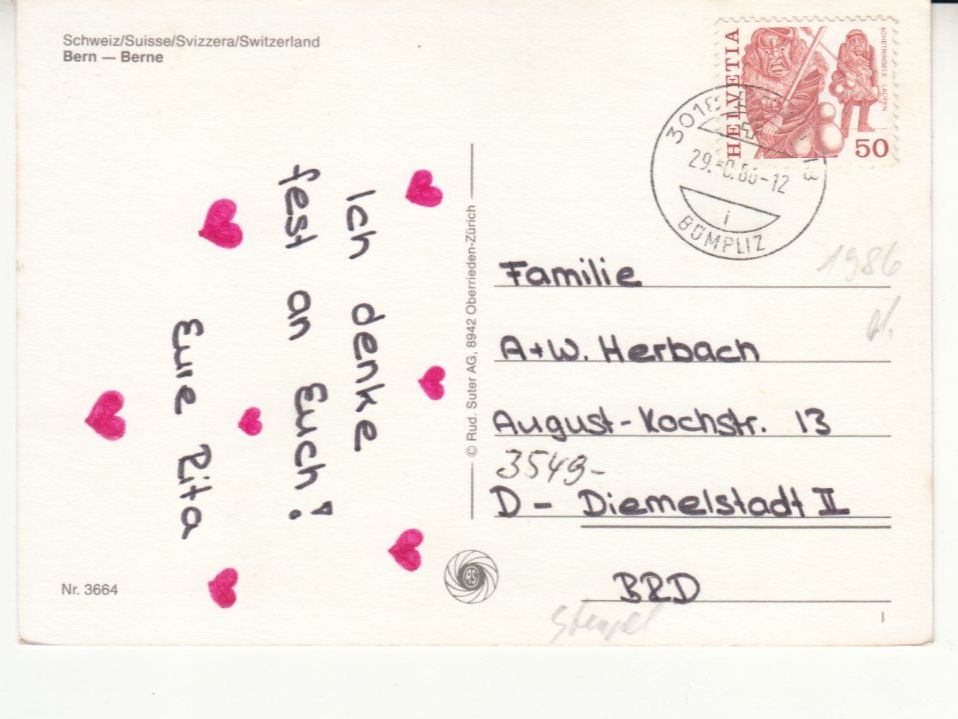 Schweiz/Suisse/Svizzera/Switzerland
Bern — Berne
Ich denke
fest an Euch!
Eure Rita
Nr. 3664
© Rud. Suter AG, 8942 Oberrieden-Zürich
RS
HELVETIA
ACHETRINGELE LAUPEN
50
BÜMPLIZ
1986
Familie
A+W. Herbach
August-Kochstr. 13
3549-
D - Diemelstadt II
BRD